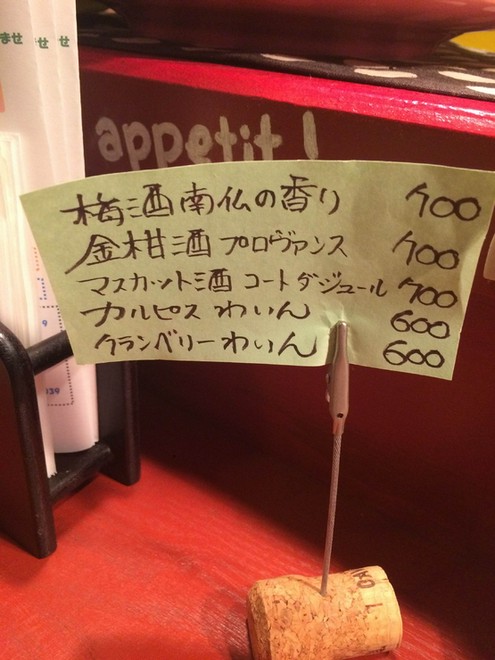 ませ
せ
せ
appetit!
梅酒 南仏の香り 700
金柑酒 プロヴァンス 700
マスカット酒 コートダジュール 700
カルピス わいん 600
クランベリーわいん 600
9
039